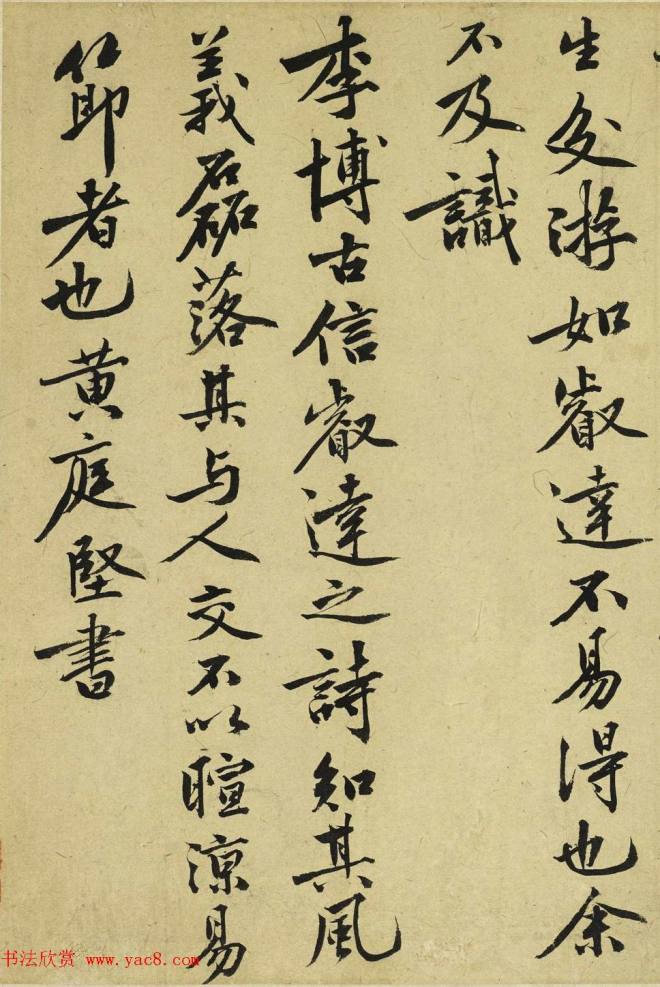 生交游如叡達不易得也余
不及識
李博古信叡達之詩知其風
義磊落其与人交不以暄凉易
節者也黄庭堅書
书法欣赏 www.yac8.com